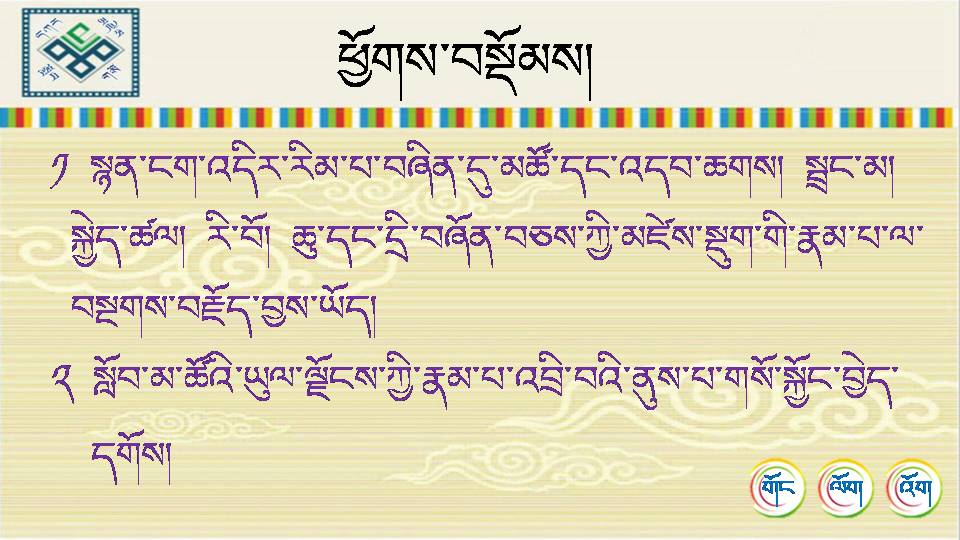 ཕྱོགས་བསྡོམས།
༡ སྙན་ངག་འདིར་རིམ་པ་བཞིན་དུ་མཚོ་དང་འདབ་ཆགས། སྦྲང་མ།
སྐྱེད་ཚལ། རི་བོ། ཆུ་དང་དྲི་བཞོན་བཅས་ཀྱི་མཛེས་སྡུག་གི་རྣམ་པ་ལ་
བསྔགས་བརྗོད་བྱས་ཡོད།
༢ སློབ་མ་ཚོའི་ཡུལ་ལྗོངས་ཀྱི་རྣམ་པ་འབྲི་བའི་ནུས་པ་གསོ་སྐྱོང་བྱེད་
དགོས།
གོང ལོག འོག